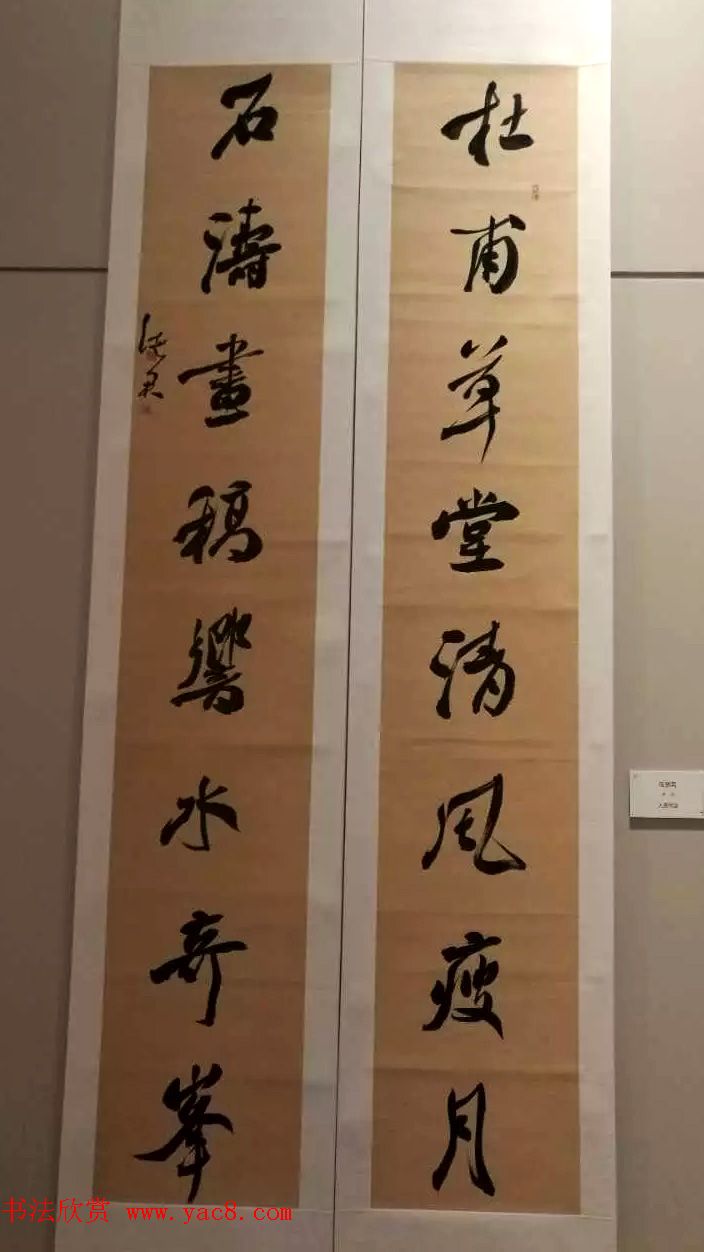 杜甫草堂清風瘦月
石濤畫稿響水奇峯
书法欣赏 www.yac8.com